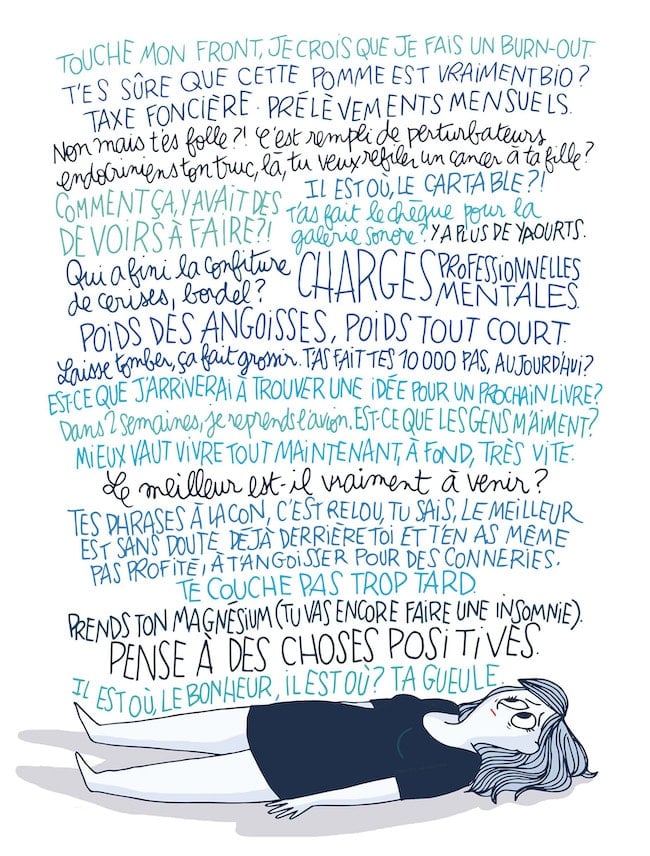 TOUCHE MON FRONT, JE CROIS QUE JE FAIS UN BURN-OUT.
T'ES SÛRE QUE CETTE POMME EST VRAIMENT BIO ?
TAXE FONCIÈRE. PRÉLÈVEMENTS MENSUELS.
Non mais t'es folle ?! C'est rempli de perturbateurs
endocriniens ton truc, là, tu veux refiler un cancer à ta fille ?
IL EST OÙ, LE CARTABLE ?!
COMMENT ÇA, Y AVAIT DES
DEVOIRS À FAIRE ?!
T'as fait le chèque pour la
galerie sonore ? Y A PLUS DE YAOURTS.
Qui a fini la confiture
de cerises, bordel ?
CHARGES PROFESSIONNELLES
MENTALES.
POIDS DES ANGOISSES, POIDS TOUT COURT.
Laisse tomber, ça fait grossir. T'AS FAIT TES 10 000 PAS, AUJOURD'HUI ?
EST-CE QUE J'ARRIVERAI À TROUVER UNE IDÉE POUR UN PROCHAIN LIVRE ?
Dans 2 semaines, je reprends l'avion. EST-CE QUE LES GENS M'AIMENT ?
MIEUX VAUT VIVRE TOUT MAINTENANT, À FOND, TRÈS VITE.
Le meilleur est-il vraiment à venir ?
TES PHRASES À LA CON, C'EST RELOU, TU SAIS, LE MEILLEUR
EST SANS DOUTE DÉJÀ DERRIÈRE TOI ET T'EN AS MÊME
PAS PROFITÉ, À T'ANGOISSER POUR DES CONNERIES.
TE COUCHE PAS TROP TARD.
PRENDS TON MAGNÉSIUM (TU VAS ENCORE FAIRE UNE INSOMNIE).
PENSE À DES CHOSES POSITIVES.
IL EST OÙ, LE BONHEUR, IL EST OÙ ? TA GUEULE.